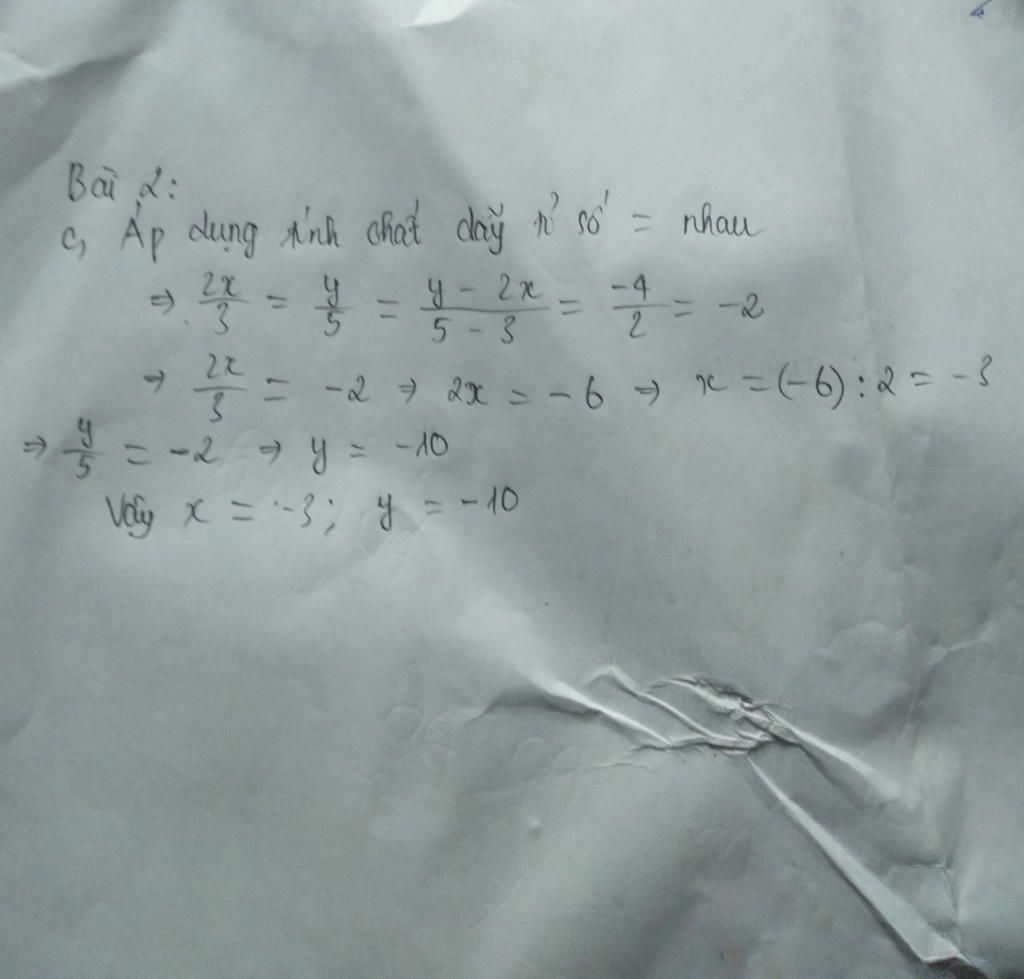 Bài 2:
c, Áp dụng tính chất dãy tỉ số = nhau
⇒ 2x/3 = y/5 = y - 2x/5 - 3 = -4/2 = -2
→ 2x/3 = -2 ⇒ 2x = -6 ⇒ x = (-6) : 2 = -3
⇒ y/5 = -2 ⇒ y = -10
Vậy x = -3; y = -10